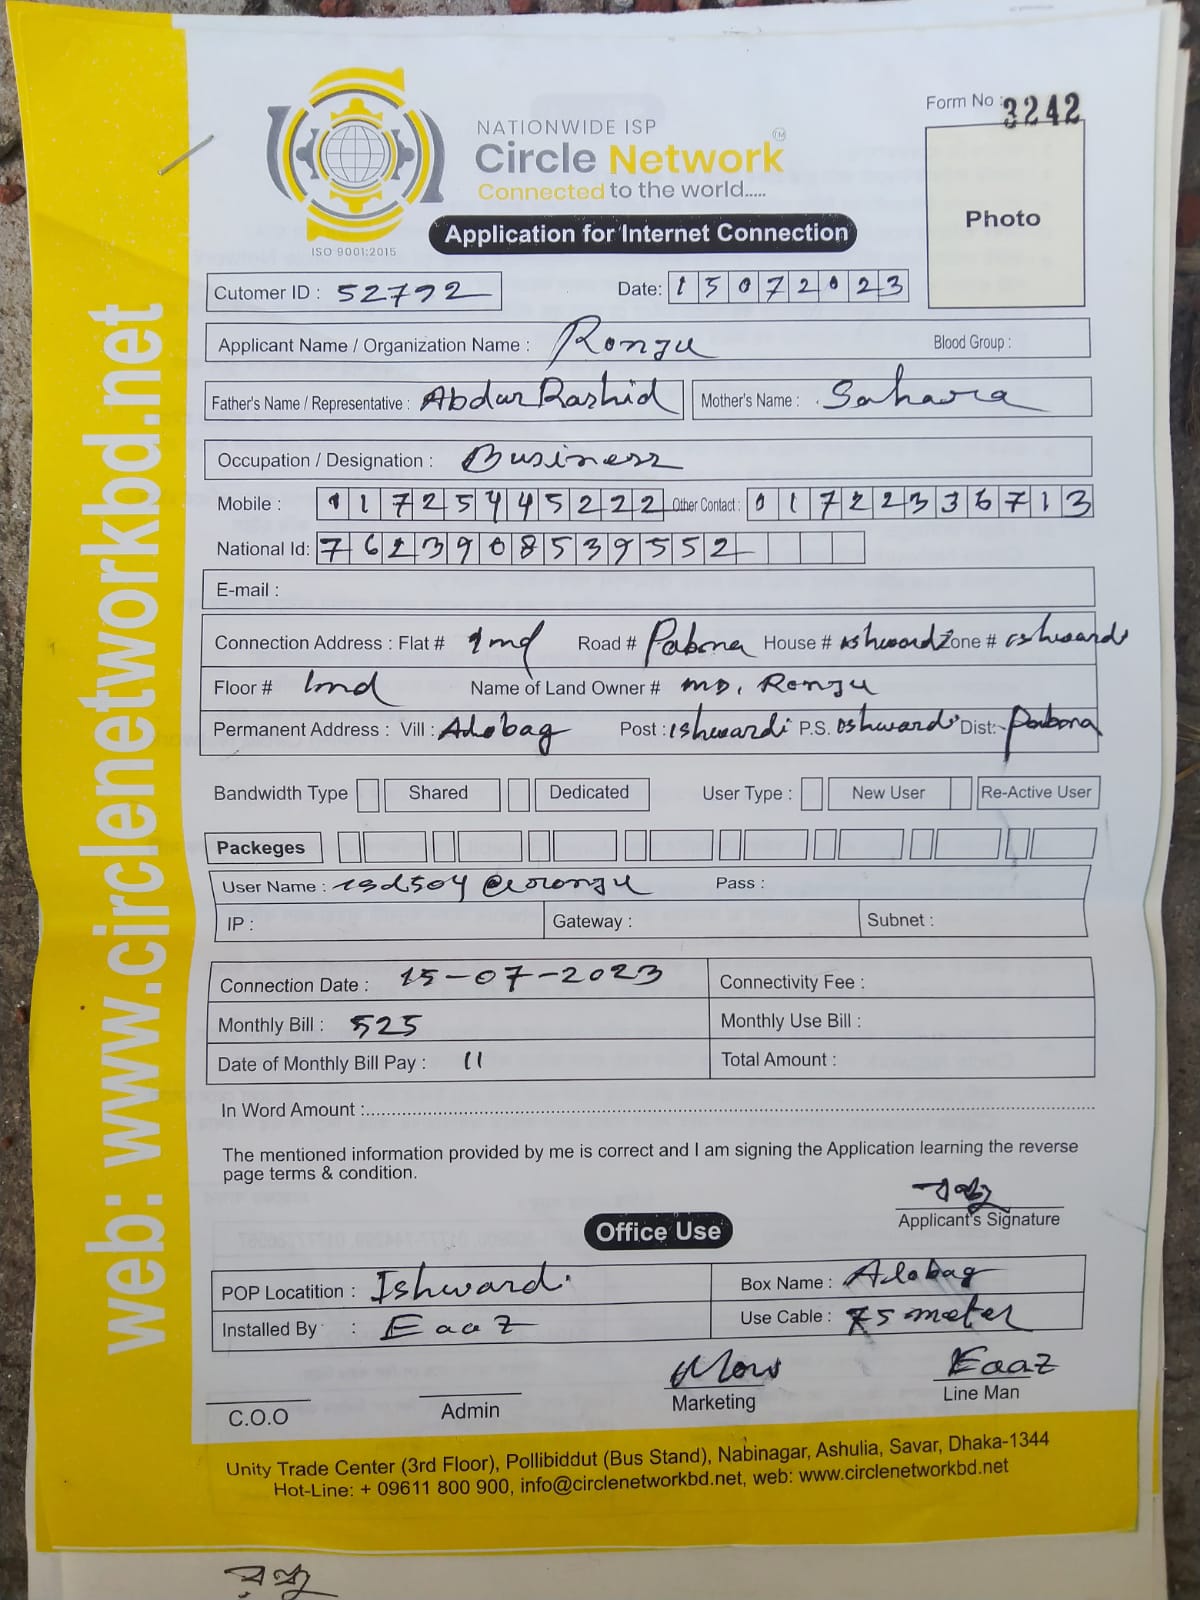 Form No : 3242
NATIONWIDE ISP
Circle Network TM
Connected to the world.....
ISO 9001:2015
Application for Internet Connection
Photo
Cutomer ID : 52792 Date: 15072023
Applicant Name / Organization Name : Ronju Blood Group :
Father's Name / Representative : Abdur Rashid Mother's Name : Sahara
Occupation / Designation : Business
Mobile : 01725445222 Other Contact : 01722336713
National Id: 7623908539552
E-mail :
Connection Address : Flat # Road # Pabona House # ishwardi Zone # ishwardi
Floor # Name of Land Owner # MD. Ronju
Permanent Address : Vill : Alobag Post : ishwardi P.S. ishwardi Dist: Pabona
Bandwidth Type Shared Dedicated User Type : New User Re-Active User
Packeges
User Name : Pass :
IP : Gateway : Subnet :
Connection Date : 15-07-2023 Connectivity Fee :
Monthly Bill : 525 Monthly Use Bill :
Date of Monthly Bill Pay : 11 Total Amount :
In Word Amount :
The mentioned information provided by me is correct and I am signing the Application learning the reverse
page terms & condition.
রঞ্জু
Applicant's Signature
Office Use
POP Locatition : Ishwardi Box Name : Alobag
Installed By : Eaaz Use Cable : 75 meter
Eaaz
C.O.O Admin Marketing Line Man
Unity Trade Center (3rd Floor), Pollibiddut (Bus Stand), Nabinagar, Ashulia, Savar, Dhaka-1344
Hot-Line: + 09611 800 900, info@circlenetworkbd.net, web: www.circlenetworkbd.net
web: www.circlenetworkbd.net
রঞ্জু